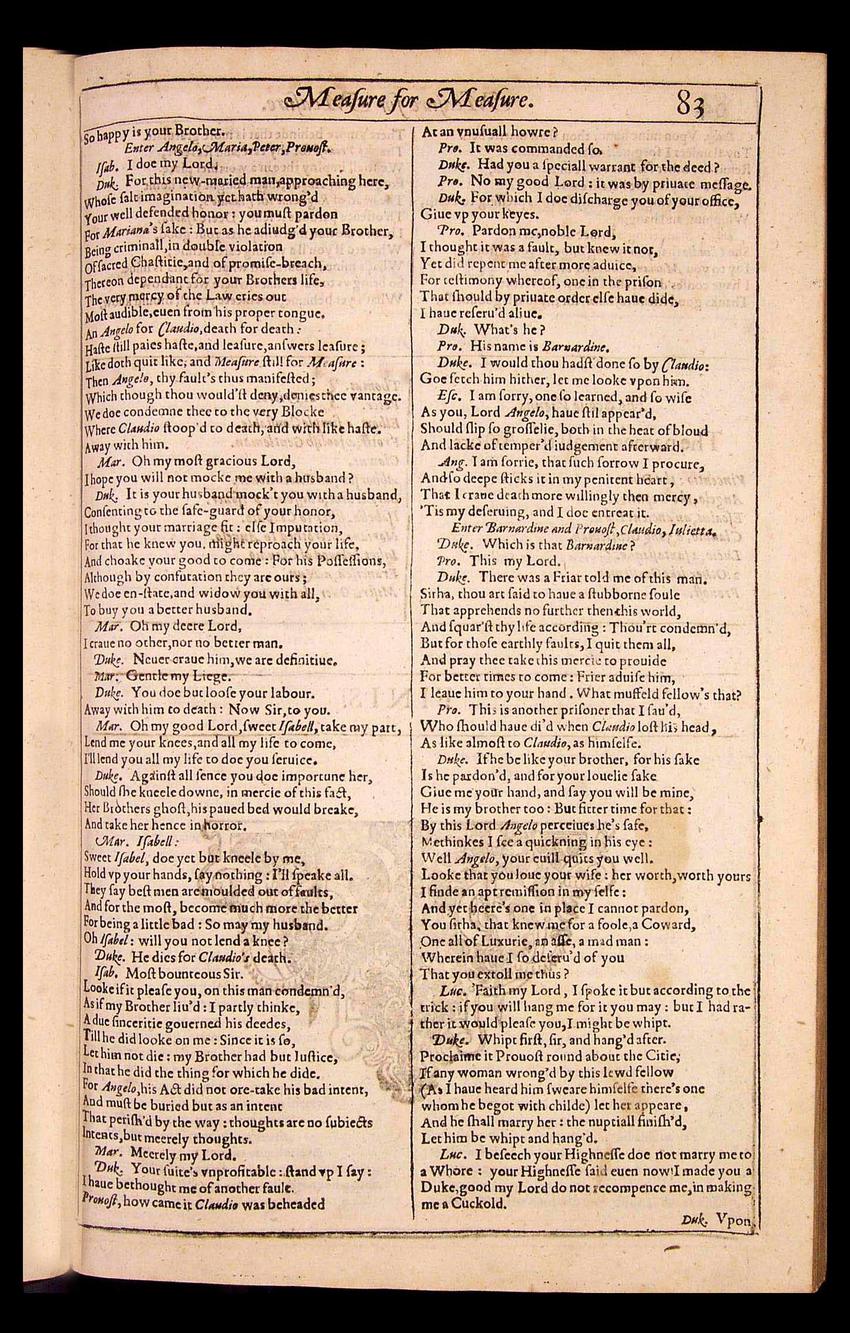 Meaſure for Meaſure.
83
So happy is your Brother.
Enter Angelo, Maria, Peter, Prouoſt.
Iſab. I doe my Lord.
Duk. For this new-maried man, approaching here,
Whoſe ſalt imagination yet hath wrong'd
Your well defended honor: you muſt pardon
For Mariana's ſake: But as he adiudg'd your Brother,
Being criminall, in double violation
Of ſacred Chaſtitie, and of promiſe-breach,
Thereon dependant for your Brothers life,
The very mercy of the Law cries out
Moſt audible, euen from his proper tongue.
An Angelo for Claudio, death for death:
Haſte ſtill paies haſte, and leaſure, anſwers leaſure;
Like doth quit like, and Meaſure ſtill for Meaſure:
Then Angelo, thy fault's thus manifeſted;
Which though thou would'ſt deny, denies thee vantage.
We doe condemne thee to the very Blocke
Where Claudio ſtoop'd to death, and with like haſte.
Away with him.
Mar. Oh my moſt gracious Lord,
I hope you will not mocke me with a husband?
Duk. It is your husband mock't you with a husband,
Conſenting to the ſafe-guard of your honor,
I thought your marriage fit: elſe Imputation,
For that he knew you, might reproach your life,
And choake your good to come: For his Poſſeſſions,
Although by confutation they are ours;
We doe en-ſtate, and widow you with all,
To buy you a better husband.
Mar. Oh my deere Lord,
I craue no other, nor no better man.
Duke. Neuer craue him, we are definitiue.
Mar. Gentle my Liege.
Duke. You doe but looſe your labour.
Away with him to death: Now Sir, to you.
Mar. Oh my good Lord, ſweet Iſabell, take my part,
Lend me your knees, and all my life to come,
I'll lend you all my life to doe you ſeruice.
Duke. Againſt all ſence you doe importune her,
Should ſhe kneele downe, in mercie of this fact,
Her Brothers ghoſt, his paued bed would breake,
And take her hence in horror.
Mar. Iſabell:
Sweet Iſabel, doe yet but kneele by me,
Hold vp your hands, ſay nothing: I'll ſpeake all.
They ſay beſt men are moulded out of faults,
And for the moſt, become much more the better
For being a little bad: So may my husband.
Oh Iſabel: will you not lend a knee?
Duke. He dies for Claudio's death.
Iſab. Moſt bounteous Sir.
Looke if it pleaſe you, on this man condemn'd,
As if my Brother liu'd: I partly thinke,
A due ſinceritie gouerned his deedes,
Till he did looke on me: Since it is ſo,
Let him not die: my Brother had but Iuſtice,
In that he did the thing for which he dide.
For Angelo, his Act did not ore-take his bad intent,
And muſt be buried but as an intent
That periſh'd by the way: thoughts are no ſubiects
Intents, but meerely thoughts.
Mar. Meerely my Lord.
Duk. Your ſuite's vnprofitable: ſtand vp I ſay:
I haue bethought me of another fault.
Prouoſt, how came it Claudio was beheaded
At an vnuſuall howre?
Pro. It was commanded ſo.
Duke. Had you a ſpeciall warrant for the deed?
Pro. No my good Lord: it was by priuate meſſage.
Duk. For which I doe diſcharge you of your office,
Giue vp your keyes.
Pro. Pardon me, noble Lord,
I thought it was a fault, but knew it not,
Yet did repent me after more aduice,
For teſtimony whereof, one in the priſon
That ſhould by priuate order elſe haue dide,
I haue reſeru'd aliue.
Duk. What's he?
Pro. His name is Barnardine.
Duke. I would thou hadſt done ſo by Claudio:
Goe fetch him hither, let me looke vpon him.
Eſc. I am ſorry, one ſo learned, and ſo wiſe
As you, Lord Angelo, haue ſtil appear'd,
Should ſlip ſo groſſelie, both in the heat of bloud
And lacke of temper'd iudgement afterward.
Ang. I am ſorrie, that ſuch ſorrow I procure,
And ſo deepe ſticks it in my penitent heart,
That I craue death more willingly then mercy,
'Tis my deſeruing, and I doe entreat it.
Enter Barnardine and Prouoſt, Claudio, Iulietta.
Duke. Which is that Barnardine?
Pro. This my Lord.
Duke. There was a Friar told me of this man.
Sirha, thou art ſaid to haue a ſtubborne ſoule
That apprehends no further then this world,
And ſquar'ſt thy life according: Thou'rt condemn'd,
But for thoſe earthly faults, I quit them all,
And pray thee take this mercie to prouide
For better times to come: Frier aduiſe him,
I leaue him to your hand. What muffeld fellow's that?
Pro. This is another priſoner that I ſau'd,
Who ſhould haue di'd when Claudio loſt his head,
As like almoſt to Claudio, as himſelfe.
Duke. If he be like your brother, for his ſake
Is he pardon'd, and for your louelie ſake
Giue me your hand, and ſay you will be mine,
He is my brother too: But fitter time for that:
By this Lord Angelo perceiues he's ſafe,
Methinkes I ſee a quickning in his eye:
Well Angelo, your euill quits you well.
Looke that you loue your wife: her worth, worth yours
I finde an apt remiſſion in my ſelfe:
And yet heere's one in place I cannot pardon,
You ſirha, that knew me for a foole, a Coward,
One all of Luxurie, an aſſe, a mad man:
Wherein haue I ſo deſeru'd of you
That you extoll me thus?
Luc. 'Faith my Lord, I ſpoke it but according to the
trick: if you will hang me for it you may: but I had ra-
ther it would pleaſe you, I might be whipt.
Duke. Whipt firſt, ſir, and hang'd after.
Proclaime it Prouoſt round about the Citie;
If any woman wrong'd by this lewd fellow
(As I haue heard him ſweare himſelfe there's one
whom he begot with childe) let her appeare,
And he ſhall marry her: the nuptiall finiſh'd,
Let him be whipt and hang'd.
Luc. I beſeech your Highneſſe doe not marry me to
a Whore: your Highneſſe ſaid euen now I made you a
Duke, good my Lord do not recompence me, in making
me a Cuckold.
Duk. Vpon